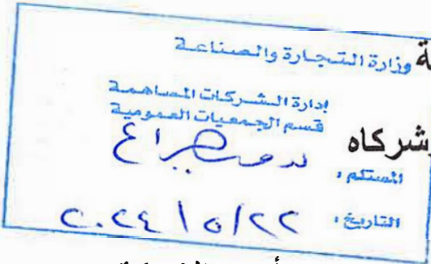 وزارة التجارة والصناعة
إدارة الشركات المساهمة
قسم الجمعيات العمومية
شركاه
المستلم :
التاريخ : ٢٠٢٤/٥/٢٢